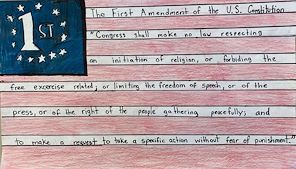 1ST
The First Amendment of the U.S. Constitution
"Congress shall make no law respecting
an initiation of religion, or forbiding the
free excercise related; or limiting the freedom of speech, or of the
press, or of the right of the people gathering peacefully; and
to make a request to take a specific action without fear of punishment."